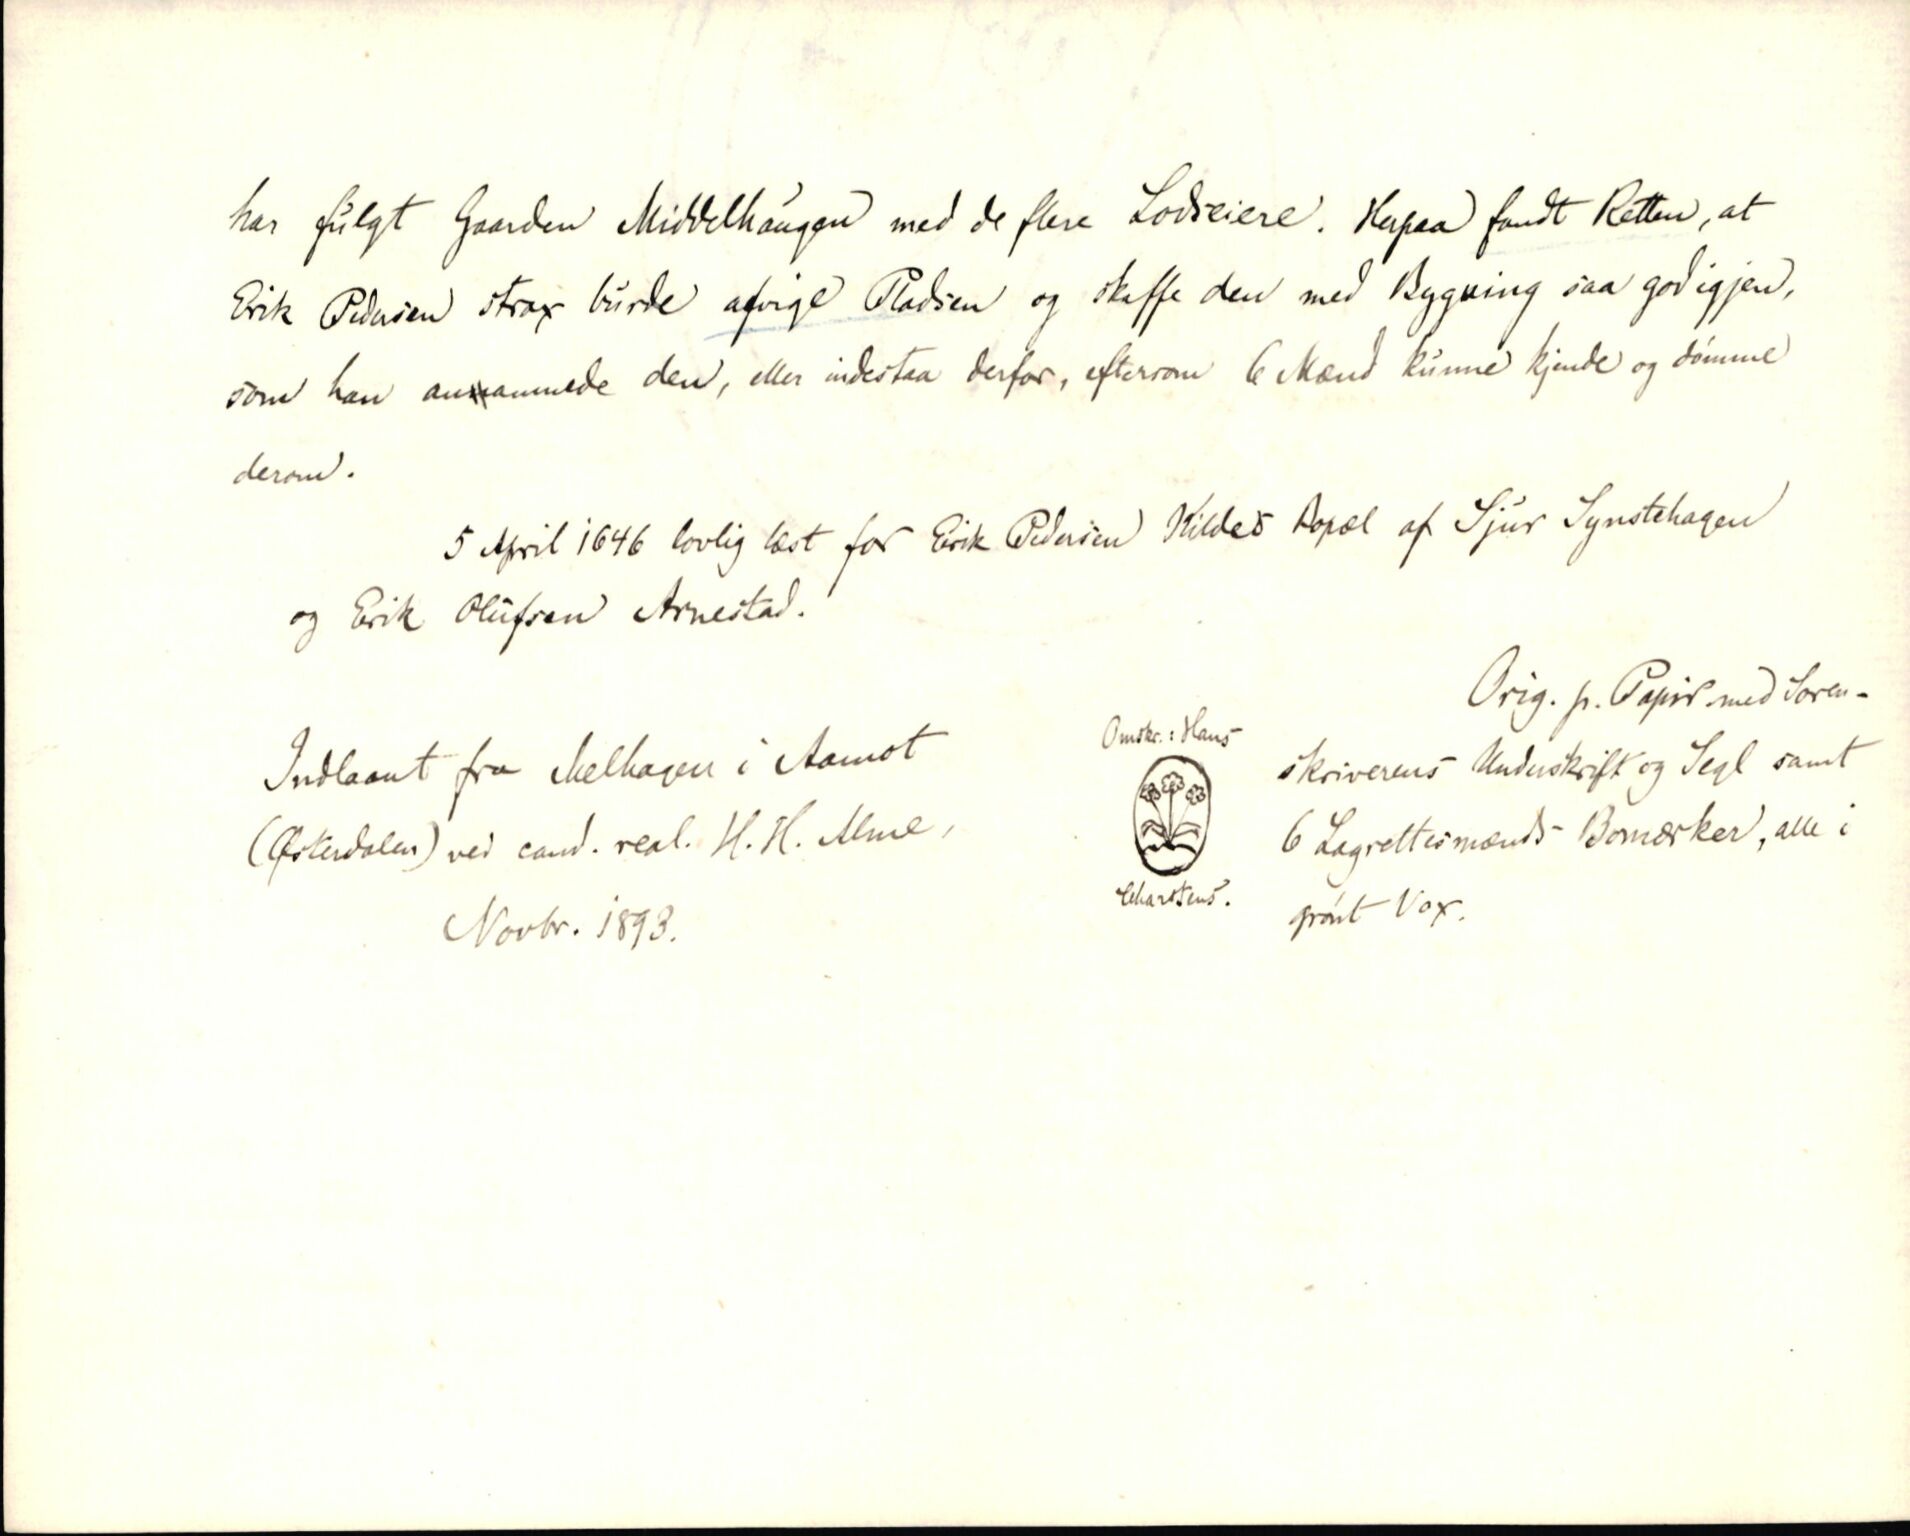 har fulgt Gaarden Middelhaugen med de flere Lodseiere. Herpaa fandt Retten, at
Erik Pedersen strax burde afvige Pladsen og skaffe den med Bygning saa god igjen,
som han anammede den, eller indestaa derfor, eftersom 6 Mænd kunne kjende og dömme
derom.
5 April 1646 lovlig læst for Erik Pedersen Kildes Bopæl af Sjur Synstehagen
og Erik Olufsen Arnestad.
Orig. p. Papir med Soren-
skriverens Underskrift og Segl samt
6 Lagrettesmænds Bomærker, alle i
grönt Vox.
Omskr.: Hans
Indlaant fra Melhagen i Aamot
(Østerdalen) ved cand. real. H. H. Alme,
Novbr. 1893.